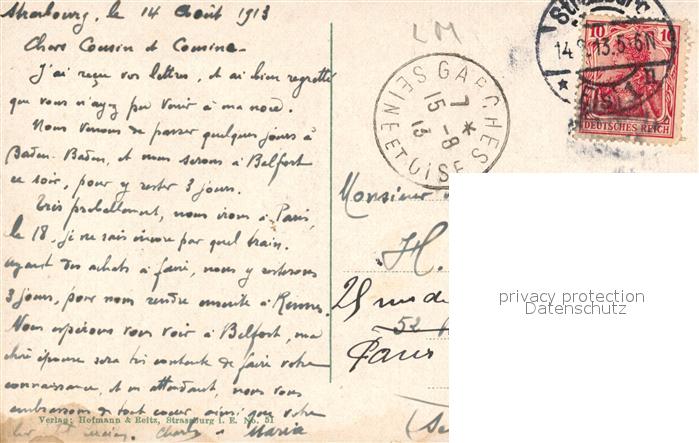 Strasbourg, le 14 Août 1913
Chers Cousin et Cousine
J'ai reçu vos lettres, et ai bien regretté
que vous n'ayez pu venir à ma noce.
Nous venons de passer quelques jours à
Baden-Baden, et nous serons à Belfort
ce soir, pour y rester 3 jours.
Très probablement, nous irons à Paris,
le 18, je ne sais encore par quel train.
ayant des achats à faire, nous y resterons
3 jours, pour nous rendre ensuite à Rennes.
Nous espérons vous voir à Belfort, ma
chère épouse sera très contente de faire votre
connaissance, et en attendant, nous vous
embrassons de tout cœur ainsi que votre
Charles & Maria
Verlag: Hofmann & Reitz, Strassburg i. E. No. 51
LM
GARCHES
7 *
15-8
13
SEINE ET OISE
Strassburg
14.8.13.5-6N
* (Els) 1 h
10 10
DEUTSCHES REICH
Monsieur
H.
25 rue de
52
Paris
privacy protection
Datenschutz